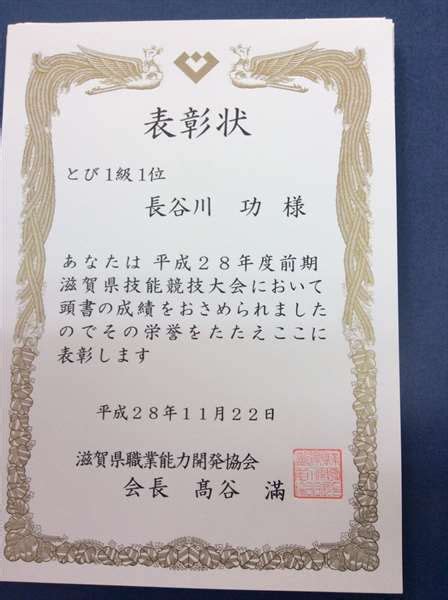 表彰状
とび1級1位
長谷川 功 様
あなたは 平成28年度前期
滋賀県技能競技大会において
頭書の成績をおさめられました
のでその栄誉をたたえここに
表彰します
平成28年11月22日
滋賀県職業能力開発協会
会長 髙谷 滿